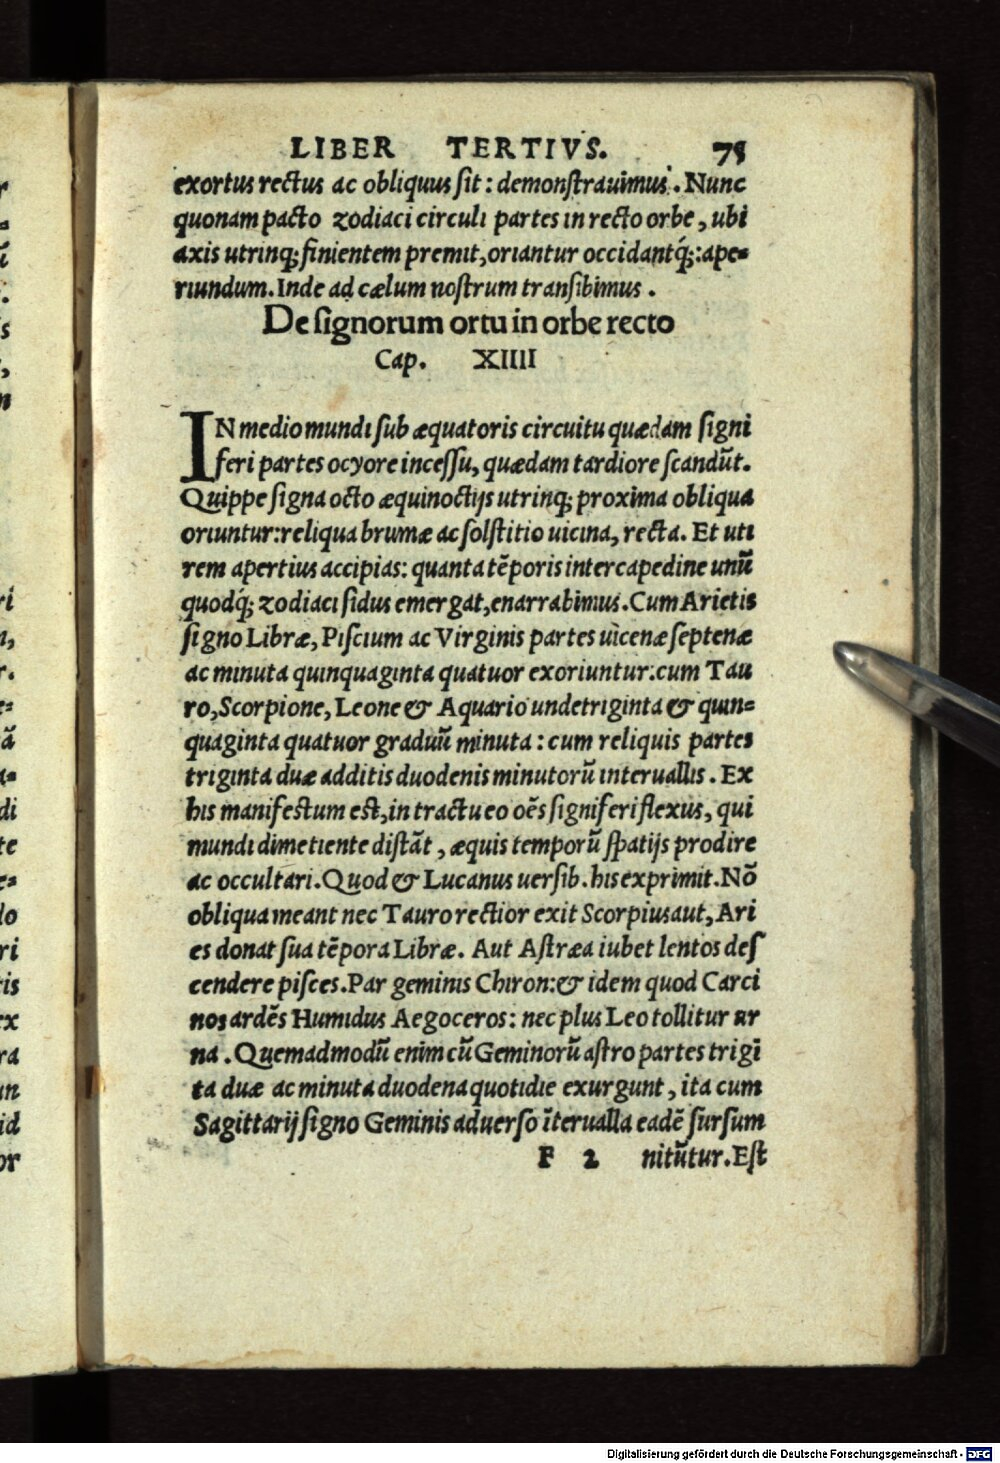 LIBER TERTIVS. 75
exortus rectus ac obliquus sit : demonstrauimus . Nunc
quonam pacto zodiaci circuli partes in recto orbe , ubi
axis utrinq; finientem premit, oriantur occidantq́;: ape=
riundum. Inde ad cælum nostrum transibimus .
De signorum ortu in orbe recto
Cap. XIIII
IN medio mundi sub æquatoris circuitu quædam signi
feri partes ocyore incessu, quædam tardiore scandũt.
Quippe signa octo æquinoctijs utrinq; proxima obliqua
oriuntur: reliqua brumæ ac solstitio uicina, recta. Et uti
rem apertius accipias: quanta tẽporis intercapedine unũ
quodq́; zodiaci sidus emergat, enarrabimus. Cum Arietis
signo Libræ, Piscium ac Virginis partes uicenæ septenæ
ac minuta quinquaginta quatuor exoriuntur: cum Tau
ro, Scorpione, Leone & Aquario undetriginta & quin=
quaginta quatuor graduũ minuta : cum reliquis partes
triginta duæ additis duodenis minutorũ interuallis . Ex
his manifestum est, in tractu eo oẽs signiferi flexus, qui
mundi dimetiente distãt , æquis temporũ spatijs prodire
ac occultari. Quod & Lucanus uersib. his exprimit. Nõ
obliqua meant nec Tauro rectior exit Scorpius aut, Ari
es donat sua tẽpora Libræ. Aut Astræa iubet lentos des
cendere pisces. Par geminis Chiron: & idem quod Carci
nos ardẽs Humidus Aegoceros: nec plus Leo tollitur ur
na . Quemadmodũ enim cũ Geminorũ astro partes trigĩ
ta duæ ac minuta duodena quotidie exurgunt , ita cum
Sagittarij signo Geminis aduerso ĩterualla eadẽ sursum
F 2 nitũtur. Est
ũ
.
s
,
n
ri
n,
r.
e=
ã
a=
di
te
e=
lo
ri
tis
ex
ra
un
id
or
Digitalisierung gefördert durch die Deutsche Forschungsgemeinschaft - DFG